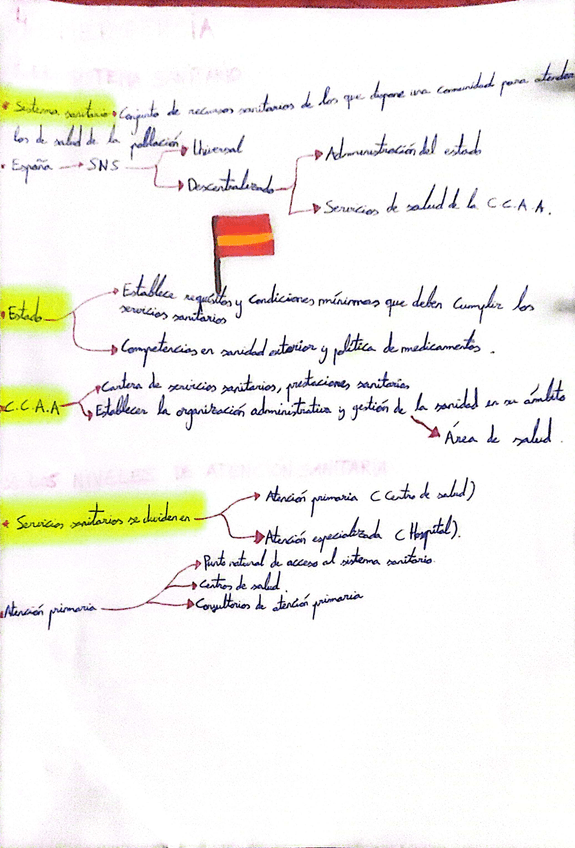 SISTEMA SANITARIO
* Sistema sanitario → Conjunto de recursos sanitarios de los que dispone una comunidad para atender
los de salud de la población
• España → SNS → Universal
→ Descentralizado → Administración del estado
→ Servicios de salud de la C.C.A.A.
• Estado → Establece requisitos y condiciones mínimas que deben cumplir los
servicios sanitarios
→ Competencias en sanidad exterior y política de medicamentos.
• C.C.A.A → Cartera de servicios sanitarios, prestaciones sanitarias
→ Establecer la organización administrativa y gestión de la sanidad en su ámbito
→ Área de salud.
LOS NIVELES DE ATENCIÓN SANITARIA
* Servicios sanitarios se dividen en → Atención primaria (Centro de salud)
→ Atención especializada (Hospital).
• Atención primaria → Punto natural de acceso al sistema sanitario.
→ Centros de salud.
→ Consultorios de atención primaria